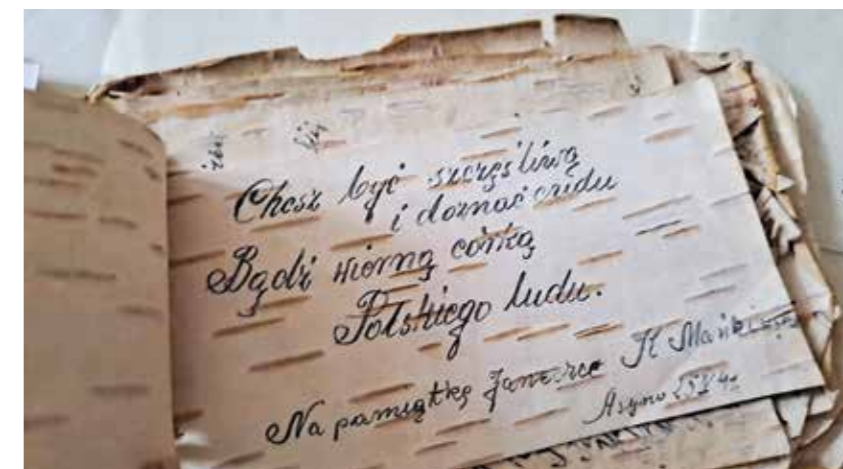 Chcesz być szczęśliwą
i doznać cudu
Bądź wierną córką
Polskiego ludu.
Na pamiątkę Janeczce K